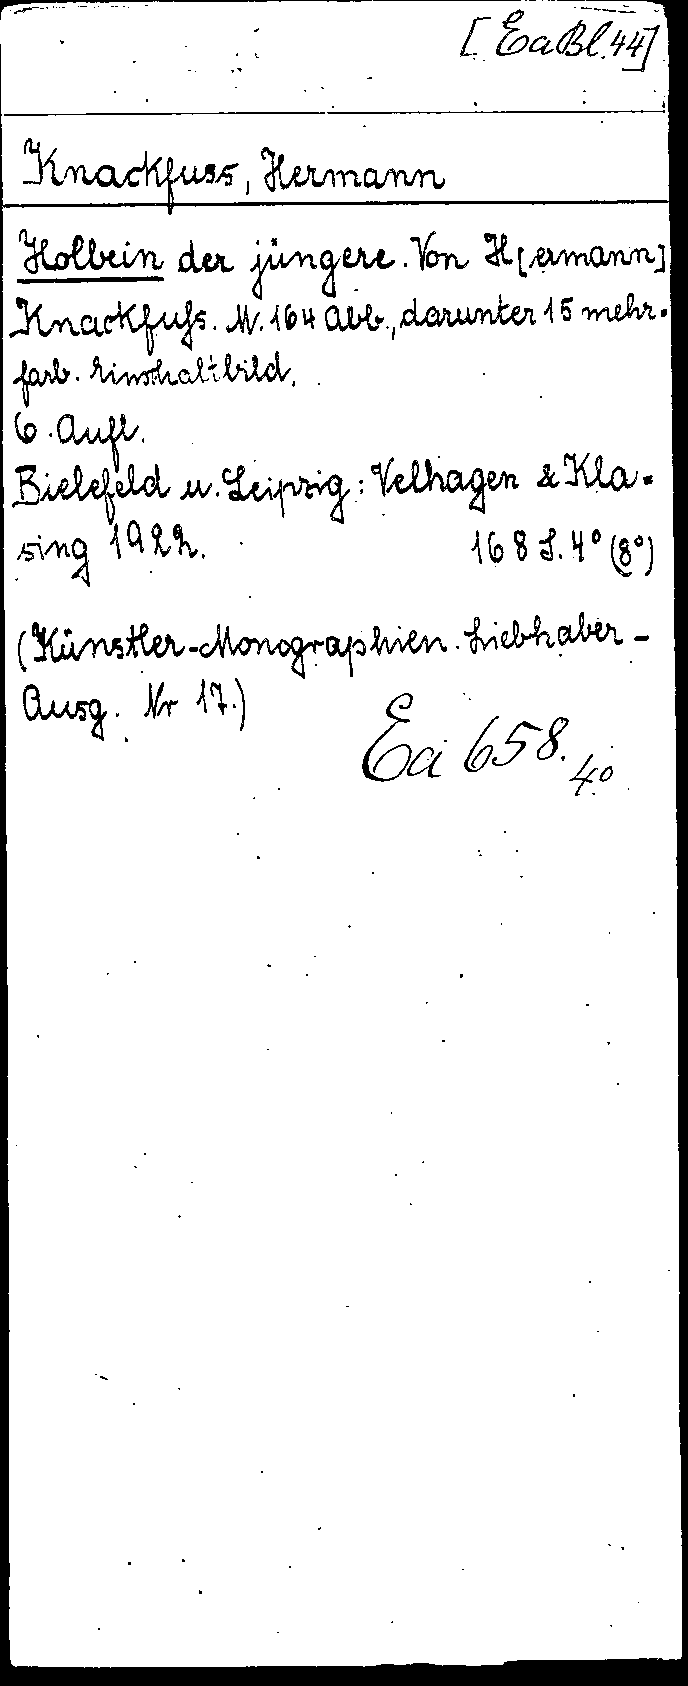 [Ea Bl. 44]
Knackfuss, Hermann
Holbein der jüngere. Von H[ermann]
Knackfuſs. M. 164 Abb., darunter 15 mehr-
farb. Einschaltbild.
6. Aufl.
Bielefeld u. Leipzig: Velhagen & Kla-
sing 1922.          168 S. 4° (8°)
(Künstler-Monographien. Liebhaber-
Ausg. Nr 17.)
Ea 658. 4°